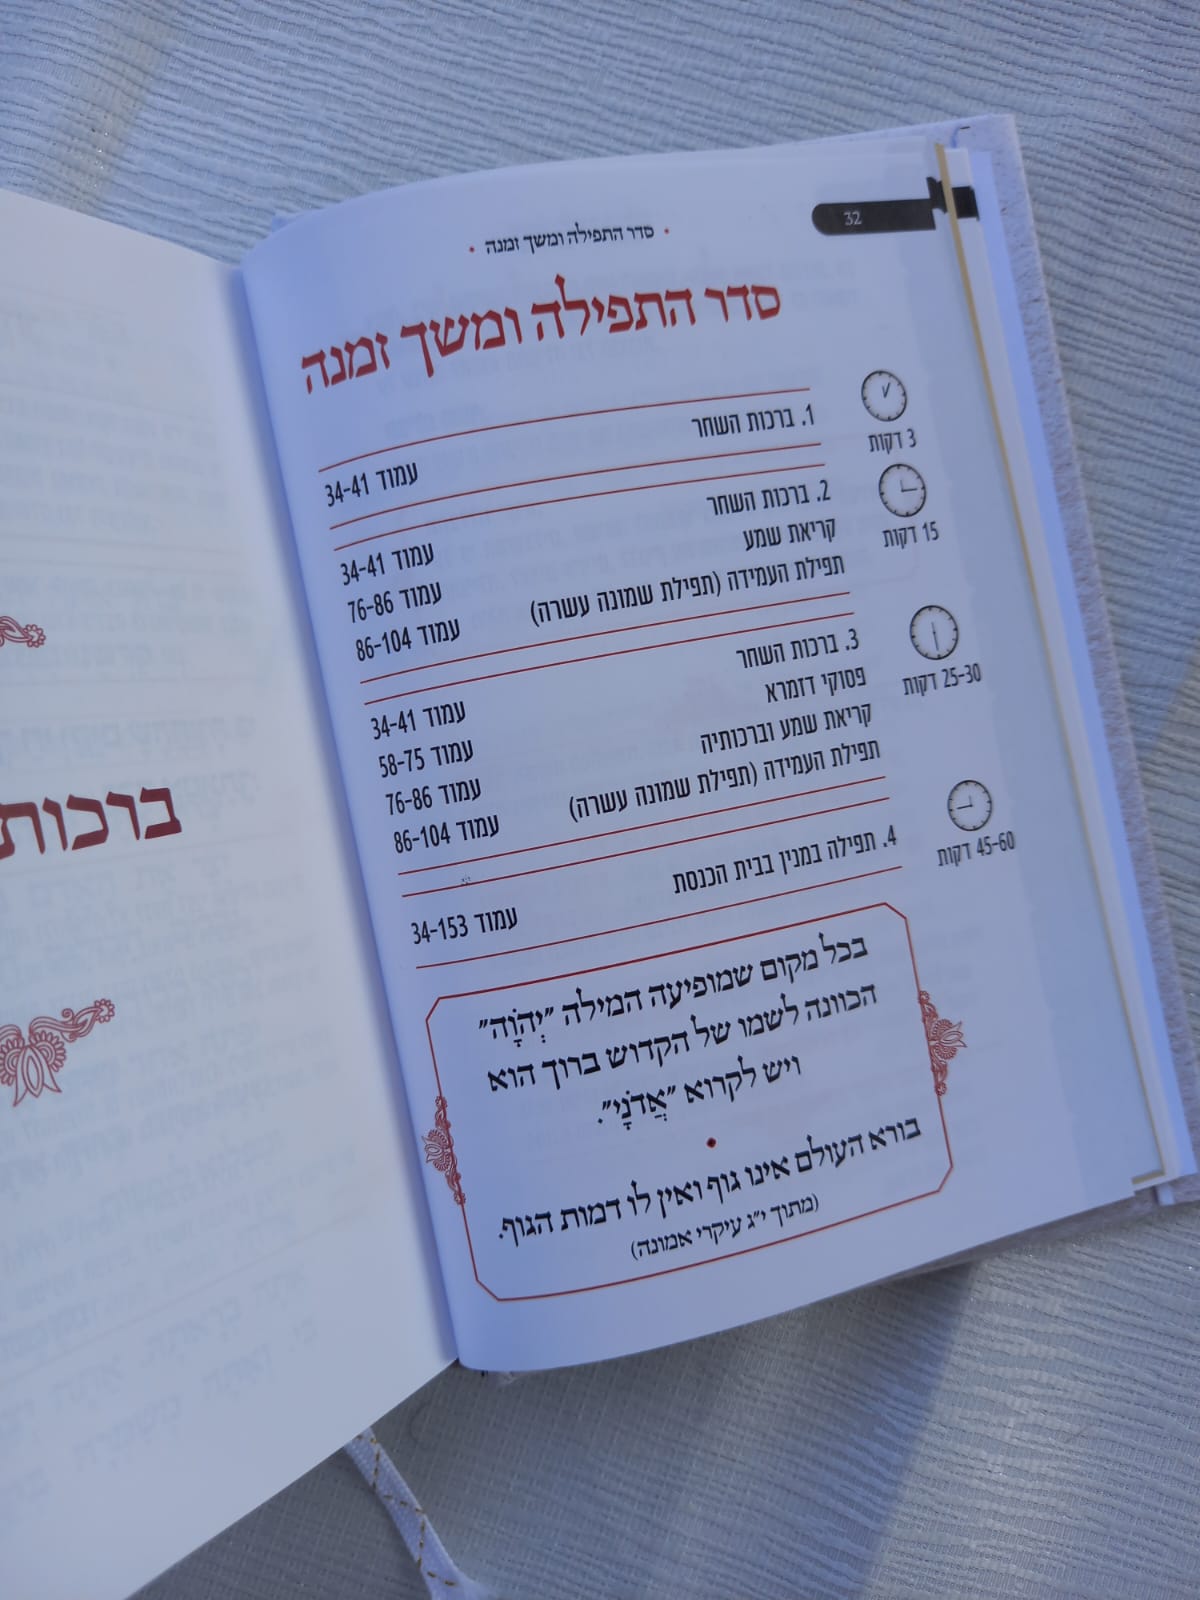 32
• סדר התפילה ומשך זמנה •
סדר התפילה ומשך זמנה
3 דקות
1. ברכות השחר
עמוד 34-41
15 דקות
2. ברכות השחר
עמוד 34-41
קריאת שמע
עמוד 76-86
תפילת העמידה (תפילת שמונה עשרה)
עמוד 86-104
25-30 דקות
3. ברכות השחר
עמוד 34-41
פסוקי דזמרא
עמוד 58-75
קריאת שמע וברכותיה
עמוד 76-86
תפילת העמידה (תפילת שמונה עשרה)
עמוד 86-104
45-60 דקות
4. תפילה במנין בבית הכנסת
עמוד 34-153
בכל מקום שמופיעה המילה "יְהֹוָה"
הכוונה לשמו של הקדוש ברוך הוא
ויש לקרוא "אֲדֹנָי".
•
בורא העולם אינו גוף ואין לו דמות הגוף.
(מתוך י"ג עיקרי אמונה)
ברכות